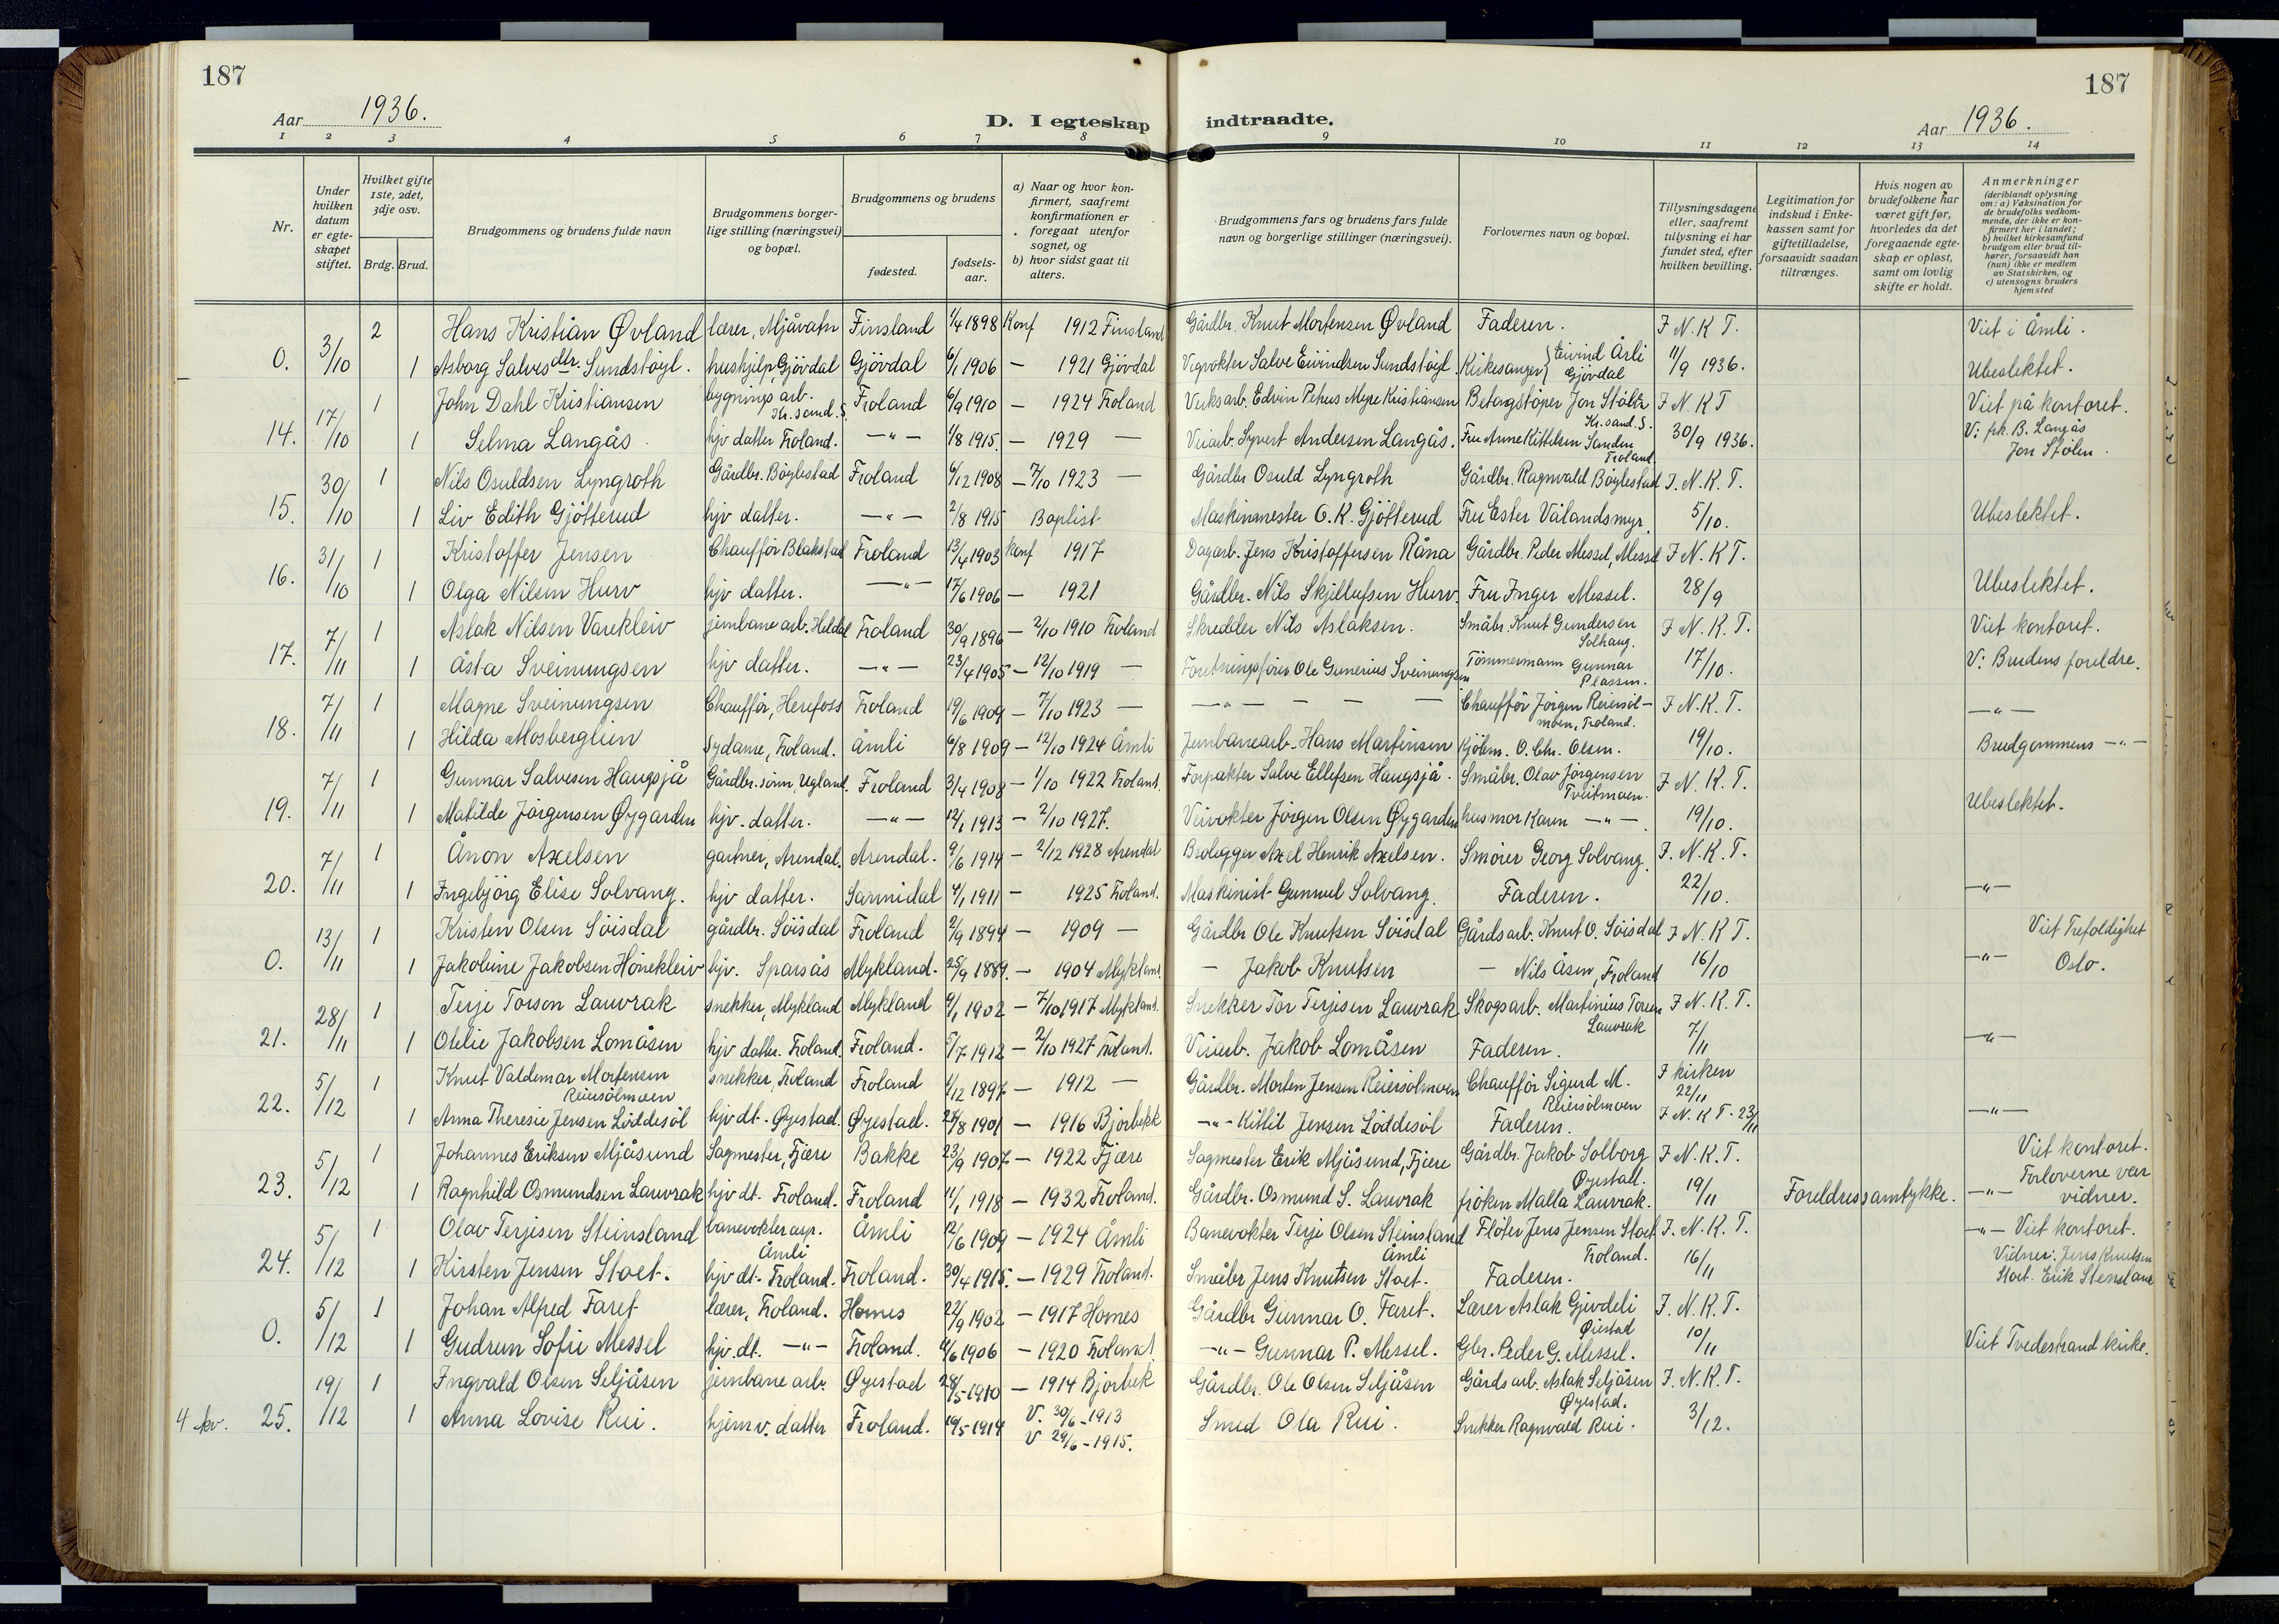 187
187
Aar 1936.
D. I egteskap indtraadte.
Aar 1936.
1 2 3 4 5 6 7 8 9 10 11 12 13 14
Nr.
Under hvilken datum er egteskapet stiftet.
Hvilket gifte 1ste, 2det, 3dje osv.
Brdg. Brud.
Brudgommens og brudens fulde navn
Brudgommens borgerlige stilling (næringsvei) og bopæl.
Brudgommens og brudens
fødested.
fødselsaar.
a) Naar og hvor konfirmert, saafremt konfirmationen er foregaat utenfor sognet, og
b) hvor sidst gaat til alters.
Brudgommens fars og brudens fars fulde navn og borgerlige stillinger (næringsvei).
Forlovernes navn og bopæl.
Tillysningsdagene eller, saafremt tillysning ei har fundet sted, efter hvilken bevilling.
Legitimation for indskud i Enkekassen samt for giftetilladelse, forsaavidt saadan tiltrænges.
Hvis nogen av brudefolkene har været gift før, hvorledes da det foregaaende egteskap er opløst, samt om lovlig skifte er holdt.
Anmerkninger
(deriblandt oplysning om: a) Vaksination for de brudefolks vedkommende, der ikke er konfirmert her i landet; b) hvilket kirkesamfund brudgom eller brud tilhører, forsaavidt han (hun) ikke er medlem av Statskirken, og c) utensogns bruders hjemsted
0. 3/10 2 Hans Kristian Øvland lærer, Mjåvatn Finsland 1/4 1898 Konf 1912 Finsland Gårdbr. Knut Mortensen Øvland Faderen. I N. K T. Viet i Åmli.
1 Asborg Salvesdtr. Sundstøyl. hushjelp, Gjövdal Gjövdal 6/1 1906 — 1921 Gjövdal Vegvokter Salve Eivindsen Sundstøyl Kirkesanger Eivind Årli Gjövdal 11/9 1936. Ubeslektet.
14. 17/10 1 John Dahl Kristiansen bygningsarb. Kr.sand. S. Froland 6/9 1910 — 1924 Froland Verksarb. Edvin Petrus Myre Kristiansen Betongstöper Jon Stölen Kr.sand. S. I N. K T Viet på kontoret.
1 Selma Langås hjv datter Froland. —"— 1/8 1915. — 1929 — Veiarb. Syvert Andersen Langås. Fru Anne Kittilsen Sanden Froland 30/9 1936. V: frk. B. Langås Jon Stölen.
15. 30/10 1 Nils Osuldsen Lyngroth Gårdbr. Böylestad Froland 6/12 1908 — 7/10 1923 — Gårdbr Osuld Lyngroth Gårdbr. Ragnvald Böylestad I. N. K. T.
1 Liv Edith Gjötterud hjv datter. —"— 2/8 1915 Baptist Maskinmester O. K. Gjötterud Fru Ester Vålandsmyr. 5/10. Ubeslektet.
16. 31/10 1 Kristoffer Jensen Chaufför Blakstad Froland 13/4 1903 Konf 1917 Dagarb. Jens Kristoffersen Råna Gårdbr. Peder Messel, Messel I N. K T.
1 Olga Nilsen Hurv hjv datter. —"— 17/6 1906 — 1921 Gårdbr. Nils Skjellufsen Hurv. Fru Inger Messel. 28/9 Ubeslektet.
17. 7/11 1 Aslak Nilsen Varekleiv jernbanearb. Heldal Froland 30/9 1896 — 2/10 1910 Froland Skredder Nils Aslaksen. Småbr. Knut Gundersen Solhaug. I N. K. T. Viet kontoret.
1 Åsta Sveinungsen hjv datter. —"— 23/4 1905 — 12/10 1919 — Forretningsförer Ole Gunerius Sveinungsen Tömmermann Gunnar Plassen. 17/10. V: Brudens foreldre.
18. 7/11 1 Magne Sveinungsen Chaufför, Herefoss Froland 19/6 1909 — 7/10 1923 — —"— — — — Chaufför Jörgen Reiersölmoen, Froland. I N. K. T. —"—
1 Hilda Mosberglien Sydame, Froland. Åmli 6/8 1909 — 12/10 1924 Åmli Jernbanearb. Hans Martinsen Kjölm. O. Chr. Olsen. 19/10. Brudgommens —"—
19. 7/11 1 Gunnar Salvesen Haugsjå Gårdbr.sönn, Ugland. Froland 3/4 1908 — 1/10 1922 Froland. Forpakter Salve Ellefsen Haugsjå. Småbr. Olav Jörgensen Tveitmoen. I N. K. T.
1 Matilde Jörgensen Øygarden hjv. datter. —"— 12/1 1913 — 2/10 1927. Veivokter Jörgen Olsen Øygarden husmor Karen —"—. 19/10. Ubeslektet.
20. 7/11 1 Ånon Axelsen gartner, Arendal. Arendal. 9/6 1914 — 2/12 1928 Arendal Brolegger Axel Henrik Axelsen. Smörer Georg Solvang. I. N. K. T.
1 Ingebjörg Elise Solvang. hjv datter. Sannidal 4/1 1911 — 1925 Froland. Maskinist Gunnul Solvang. Faderen. 22/10. —"—
0. 13/11 1 Kristen Olsen Söisdal gårdbr. Söisdal Froland 2/9 1894 — 1909 — Gårdbr Ole Knutsen Söisdal Gårdsarb. Knut O. Söisdal I N. K T. Viet Trefoldighet
1 Jakobine Jakobsen Hönekleiv hjv. Sparsås Mykland. 25/9 1889. — 1904 Mykland. — Jakob Knutsen — Nils Åsen, Froland 16/10 —"— Oslo.
21. 28/11 1 Terje Torson Lauvrak snekker, Mykland Mykland 9/1 1902 — 7/10 1917 Mykland. Snekker Tor Terjesen Lauvrak Skogsarb. Martinius Torsen Lauvrak I N. K. T.
1 Otelie Jakobsen Lomåsen hjv datter. Froland. Froland. 5/7 1912 — 2/10 1927 Froland. Veiarb. Jakob Lomåsen Faderen. 7/11 —"—
22. 5/12 1 Knut Valdemar Mortensen Reiersölmoen snekker, Froland Froland 1/12 1897 — 1912 — Gårdbr. Morten Jensen Reiersölmoen Chaufför Sigurd M. Reiersölmoen I kirken 22/11
1 Anna Theresie Jensen Löddesöl hjv dt. Øyestad. Øyestad. 24/8 1901 — 1916 Bjorbekk —"— Kittil Jensen Löddesöl Faderen. I N. K T. 23/11 —"—
23. 5/12 1 Johannes Eriksen Mjåsund Sagmester, Fjære Bakke 23/9 1907 — 1922 Fjære Sagmester Erik Mjåsund, Fjære Gårdbr. Jakob Solborg Øyestad. I N. K. T. Viet kontoret.
1 Ragnhild Osmundsen Lauvrak hjv dt. Froland. Froland 11/1 1918 — 1932 Froland. Gårdbr. Osmund S. Lauvrak fröken Malla Lauvrak. 19/11 Foreldressamtykke. —"— Forloverne var vidner.
24. 5/12 1 Olav Terjesen Steinsland banevokterasp. Åmli Åmli 12/6 1909 — 1924 Åmli Banevokter Terje Olsen Steinsland Åmli Fløter Jens Jensen Stoet Froland. I. N. K. T. —"— Viet kontoret.
1 Kirsten Jensen Stoet. hjv dt. Froland. Froland. 30/4 1915. — 1929 Froland. Småbr Jens Knutsen Stoet. Faderen. 16/11 Vidner: Jens Knutsen Stoet. Erik Stensland
0. 5/12 1 Johan Alfred Faret lærer, Froland. Homes 22/9 1902 — 1917 Homes Gårdbr Gunnar O. Faret. Lærer Aslak Gjevdeli Øiestad I. N. K. T.
1 Gudrun Sofie Messel hjv. dt. —"— Froland. 4/6 1906 — 1920 Froland. —"— Gunnar P. Messel. Gbr. Peder G. Messel. 10/11 Viet Tvedestrand kirke.
19/12 1 Ingvald Olsen Seljåsen jernbanearb. Øyestad 28/5 1910 — 1914 Bjorbek Gårdbr. Ole Olsen Seljåsen Gårdsarb. Aslak Seljåsen Øyestad. I. N. K. T.
4 kv. 25. 1 Anna Lovise Rui. hjemv. datter Froland. 19/5 1914 V. 30/6 - 1913 V 29/6 - 1915. Smed Ola Rui. Snekker Ragnvald Rui. 3/12.